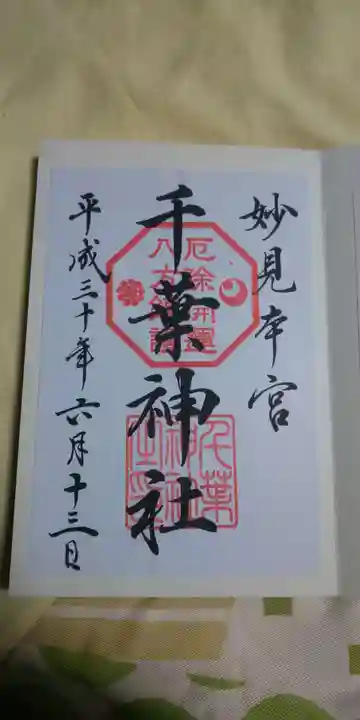 妙見本宮
千葉神社
平成三十年六月十三日
厄除開運
八方除
千葉神社